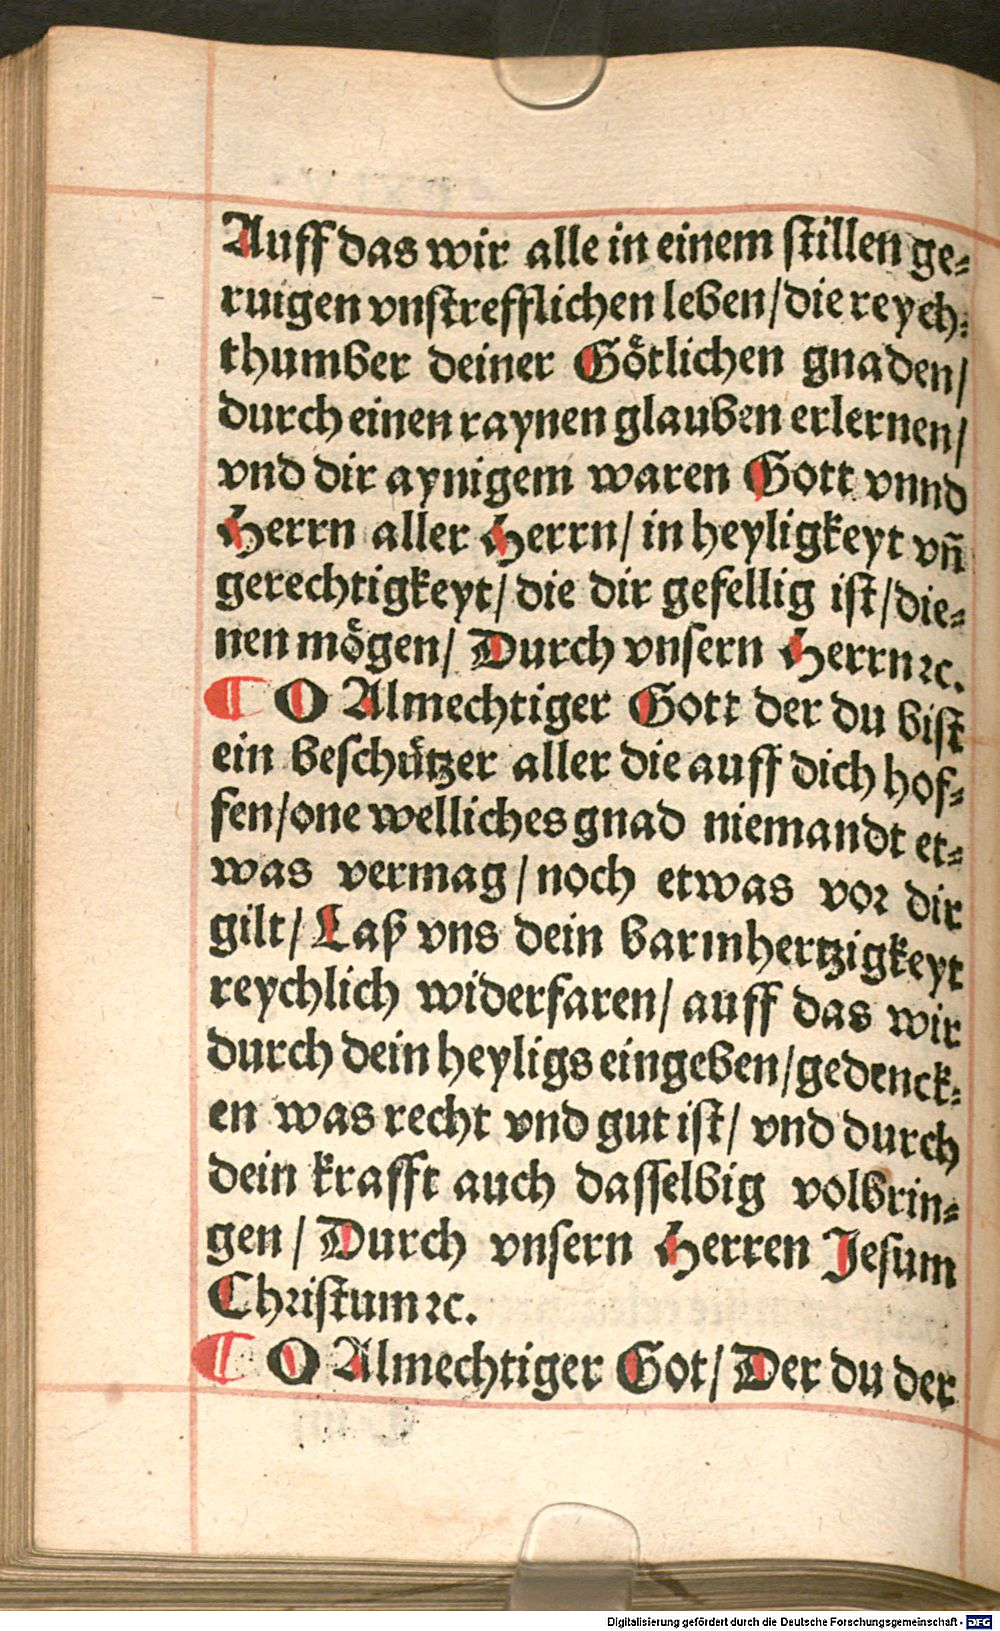 Auff das wir alle in einem ſtillen ge⸗
ruigen vnſtrefflichen leben/die reych⸗
thumber deiner Go̊tlichen gnaden/
durch einen raynen glauben erlernen/
vnd dir aynigem waren Gott vnnd
Herrn aller Herrn/ in heyligkeyt vn̄
gerechtigkeyt/ die dir gefellig iſt/die⸗
nen mo̊gen/ Durch vnſern Herrn ꝛc.
¶ O Almechtiger Gott der du biſt
ein beſchu̎tzer aller die auff dich hof⸗
fen/one welliches gnad niemandt et⸗
was vermag/noch etwas voꝛ dir
gilt/ Laß vns dein barmhertzigkeyt
reychlich widerfaren/ auff das wir
durch dein heyligs eingeben/gedenck⸗
en was recht vnd gut iſt/ vnd durch
dein krafft auch daſſelbig volbrin⸗
gen/ Durch vnſern Herren Jeſum
Chꝛiſtum ꝛc.
¶ O Almechtiger Got/ Der du der
Digitalisierung gefördert durch die Deutsche Forschungsgemeinschaft - DFG